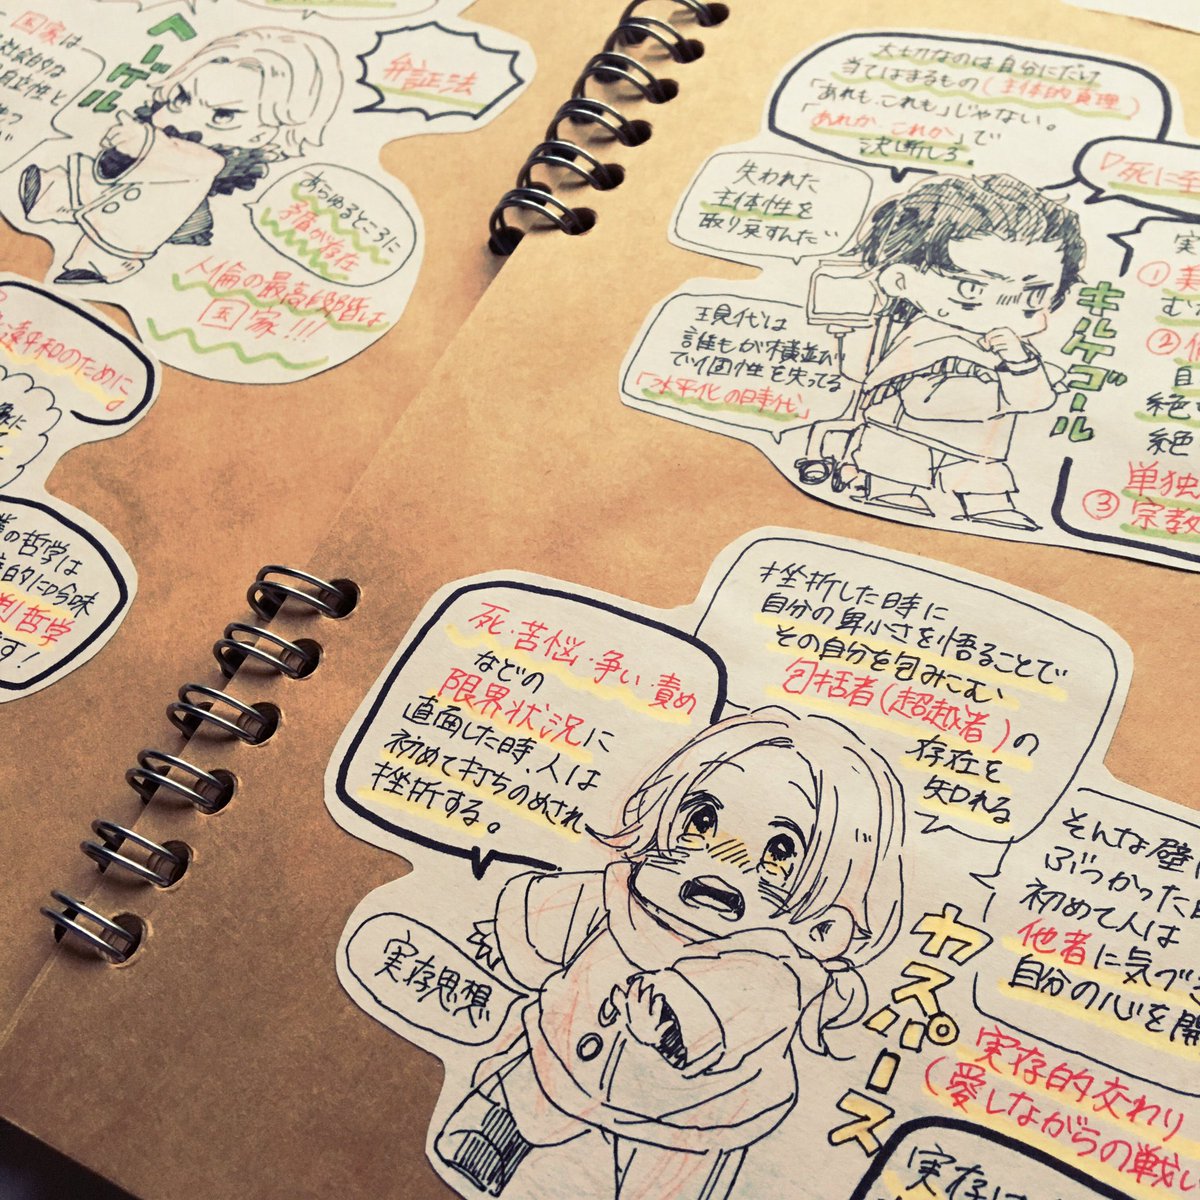 国家は
社会的な
自立性と
ヘーゲル
弁証法
あらゆるところに
矛盾が存在
人倫の最高段階は
国家!!!
永遠平和のために
の哲学は
的に吟味
判哲学
す!
大切なのは自分にだけ
当てはまるもの(主体的真理)
「あれも、これも」じゃない。
「あれか これか」で
決断しろ。
失われた
主体性を
取り戻すんだ
現代は
誰もが横並びで
個性を失ってる
「水平化の時代」
キルケゴール
『死に至
実
①美
む
②
自
絶
絶
単独
③宗教
死・苦悩・争い・責め
などの
限界状況に
直面した時、人は
初めて打ちのめされ
挫折する。
挫折した時に
自分の卑小さを悟ることで
その自分を包みこむ
包括者(超越者)の
存在を
知れる
実存思想
ヤスパース
そんな壁に
ぶつかった
初めて人は
他者に気づき
自分の心を開
実存的交わり
(愛しながらの戦い
実存